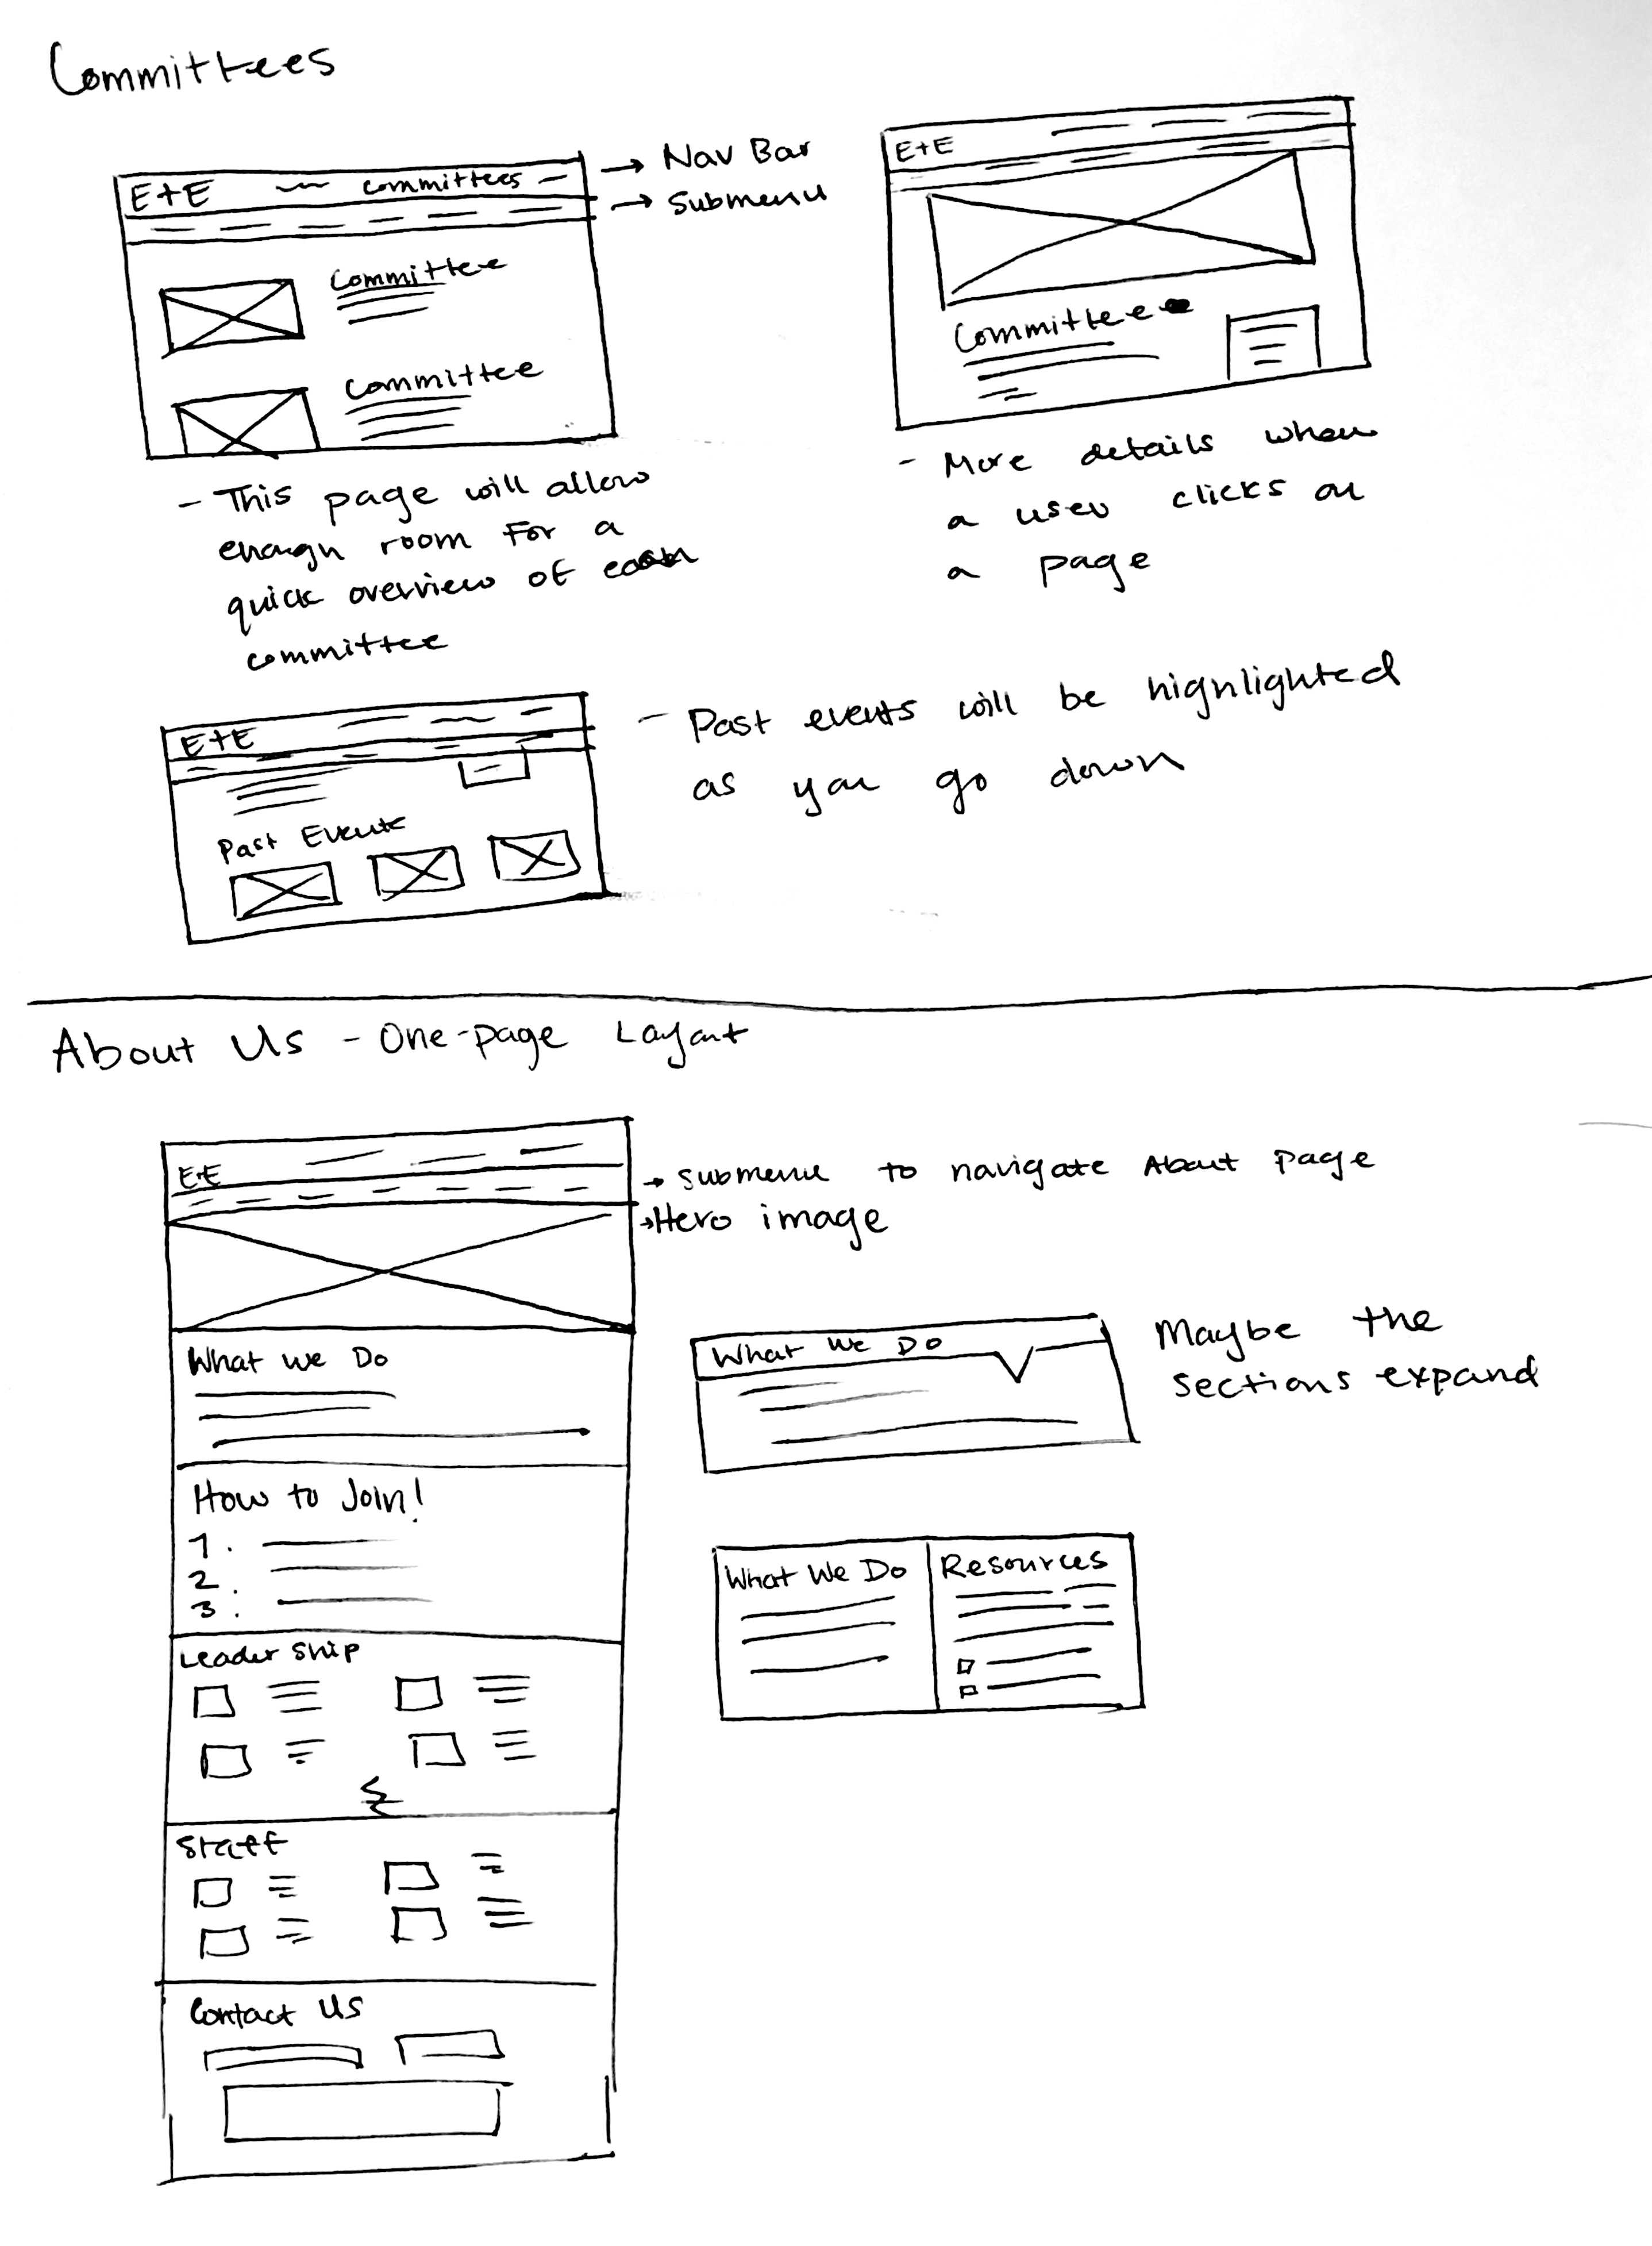 Committees
E+E committees
→ Nav Bar
→ Submenu
Committee
Committee
- This page will allow
enough room for a
quick overview of each
committee
E+E
Committee
- More details when
a user clicks on
a page
E+E
Past Events
- Past events will be highlighted
as you go down
About Us - One-page Layout
E+E
→ submenu to navigate About Page
→ Hero image
What we Do
How to Join!
1.
2.
3.
Leadership
Staff
Contact Us
What We Do
Maybe the
sections expand
What We Do
Resources